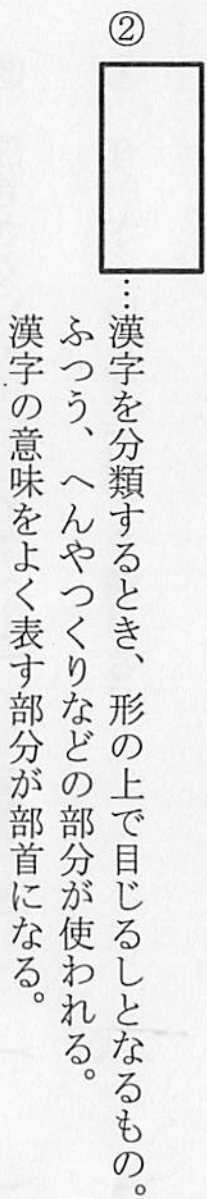 ②
…漢字を分類するとき、形の上で目じるしとなるもの。
ふつう、へんやつくりなどの部分が使われる。
漢字の意味をよく表す部分が部首になる。